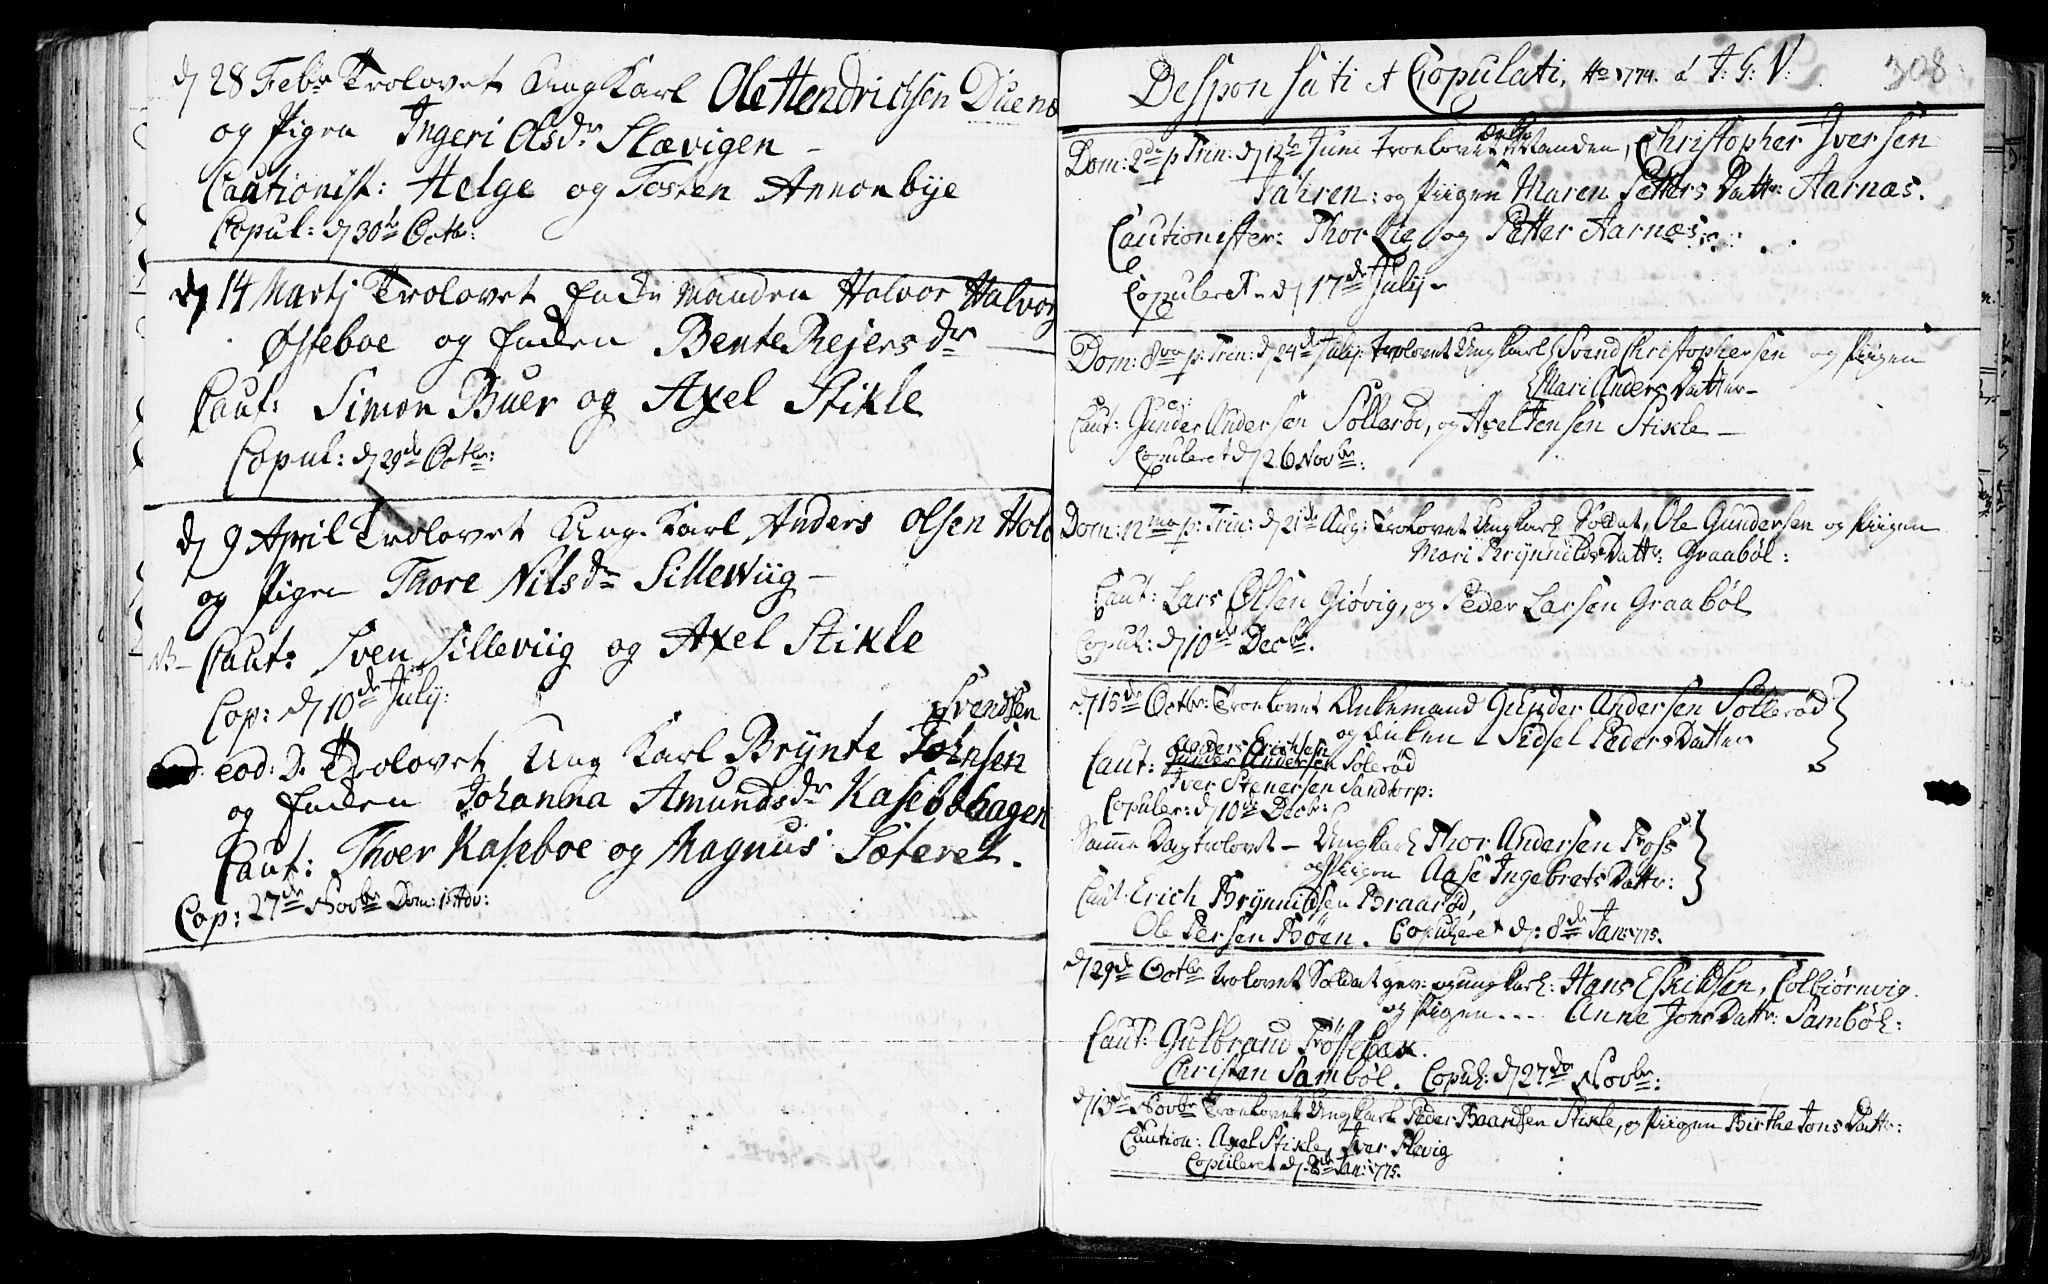 d 28 Febr Trolovet Ung Karl Ole Hendrichsen Due næ
og Pigen Ingeri Olsdr Slævigen –
Cautionist: Helge og Tosten Annonbye
Copul: d 30te Octbr:
d 14 Martj Trolovet Enke Manden Halvor Halvors
Østeboe og Enken Bente Rejersdr
Caut: Simon Buer og Axel Stikle
Copul: d 29de Octbr:
d 9 April Trolovet Ung Karl Anders Olsen Hold
og Pigen Thore Nilsdr Sillewiig –
NB – Caut: Sven Silleviig og Axel Stikle
Cop: d 10de July:
Svendsen
eod: D. Trolovet Ung Karl Brynte Johnsen
og Enken Johanna Amundsdr Kaseboehagen
Caut: Thoer Kaseboe og Magnus Sæteret.
Cop: 27de Novbr Dom: 1 Adv:
Desponsati et Copulati, Ao 1774. á J: G: V: 308
Dom: 2de p Trin: d 12te Juni troelovet Enke Manden, Christopher Iversen
Jahren: og Piigen Maren Petters Dattr: Aarnæs.
Cautionister: Thor Lie og Petter Aarnæs:
Copuleret d 17de Julij
Dom: 8va p: Trin: d 24de Julij: trolovet Ungkarl Svend Christophersen og Piigen
Mari Anders Datter –
Caut: Gunder Andersen Sollerød, og Axel Jensen Stikle –
Copuleret d 26 Novbr:
Dom: 12ma p: Trin: d 21de Aug: Trolovet Ungkarl Soldat, Ole Gundersen og Piigen
Mari Brynnilds Dattr: Graabøl:
Caut: Lars Olsen Giövig, og Peder Larsen Graabøl
Copul: d 10de Decbr.
d 15de Octbr: Troelovet Enkemand Gunder Andersen Sollerød
og Enken Sidsel Peders Datter
Anders Erichsen
Caut: Gunder Andersen Solerød
Iver Stenersen Sandtorp:
Copuler: d 10de Decbr:
Samme Dag trolovet – Ungkarl Thor Andersen Foss
og Piigen Aase Ingebrets Dattr:
Caut: Erich Brynnildsen Braarød,
Ole Persen Böen. Copuleret d: 8de Jan: 1775.
d 29de Octbr trolovet Soldat gev: og ungkarl: Hans Eskildsen, Colbiörnvig.
og Piigen... Anne Jons Dattr: Sambøl:
Caut: Gulbrand Fössebæk.
Christen Sambøl. Copul: d 27de Novbr:
d 13de Novbr Troelovet Ungkarl Peder Baardsen Stikle, og Piigen Birthe Jons Dattr:
Caution: Axel Stikle, Iver Slevig
Copuleret d. 8de Jan: 1775.